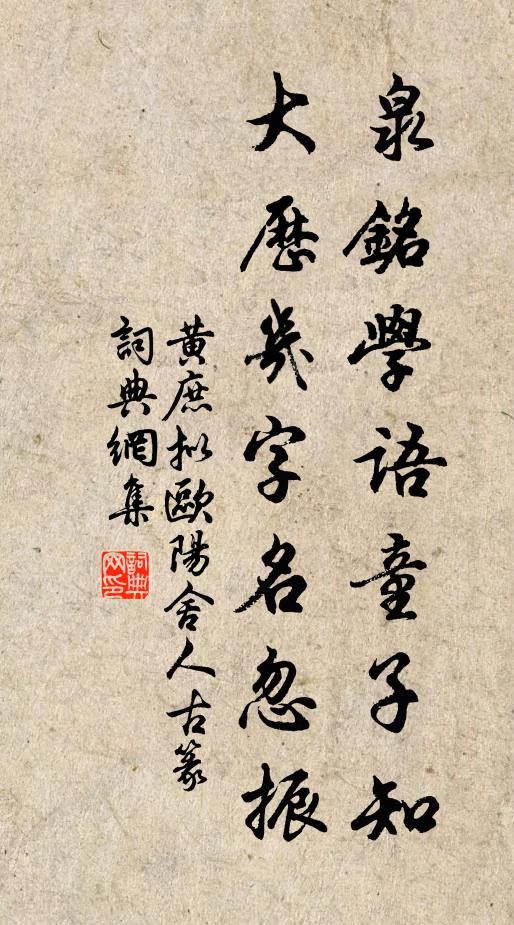 泉銘學語童子知
大歷幾字名忽振
黃庶拟歐陽舍人古篆
詞典網集
詞典网印